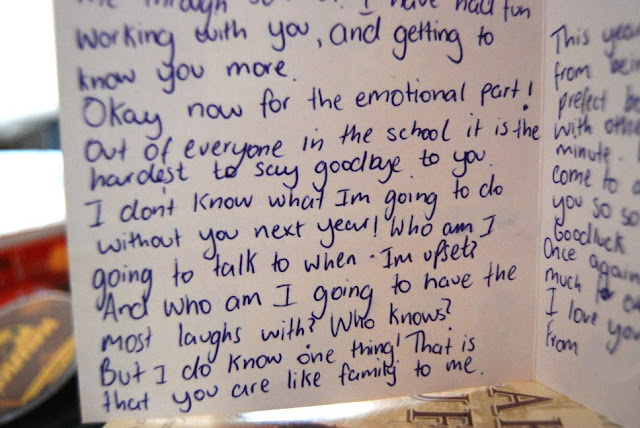 through
I have had fun
working with you, and getting to
know you more.
Okay now for the emotional part!
Out of everyone in the school it is the
hardest to say goodbye to you.
I don't know what Im going to do
without you next year! Who am I
going to talk to when Im upset?
And who am I going to have the
most laughs with? Who knows?
But I do know one thing! That is
that you are like family to me.
This year
from bein
prefect b
with othe
minute.
come to
you so so
Goodluck
Once again
much for
I love you
From